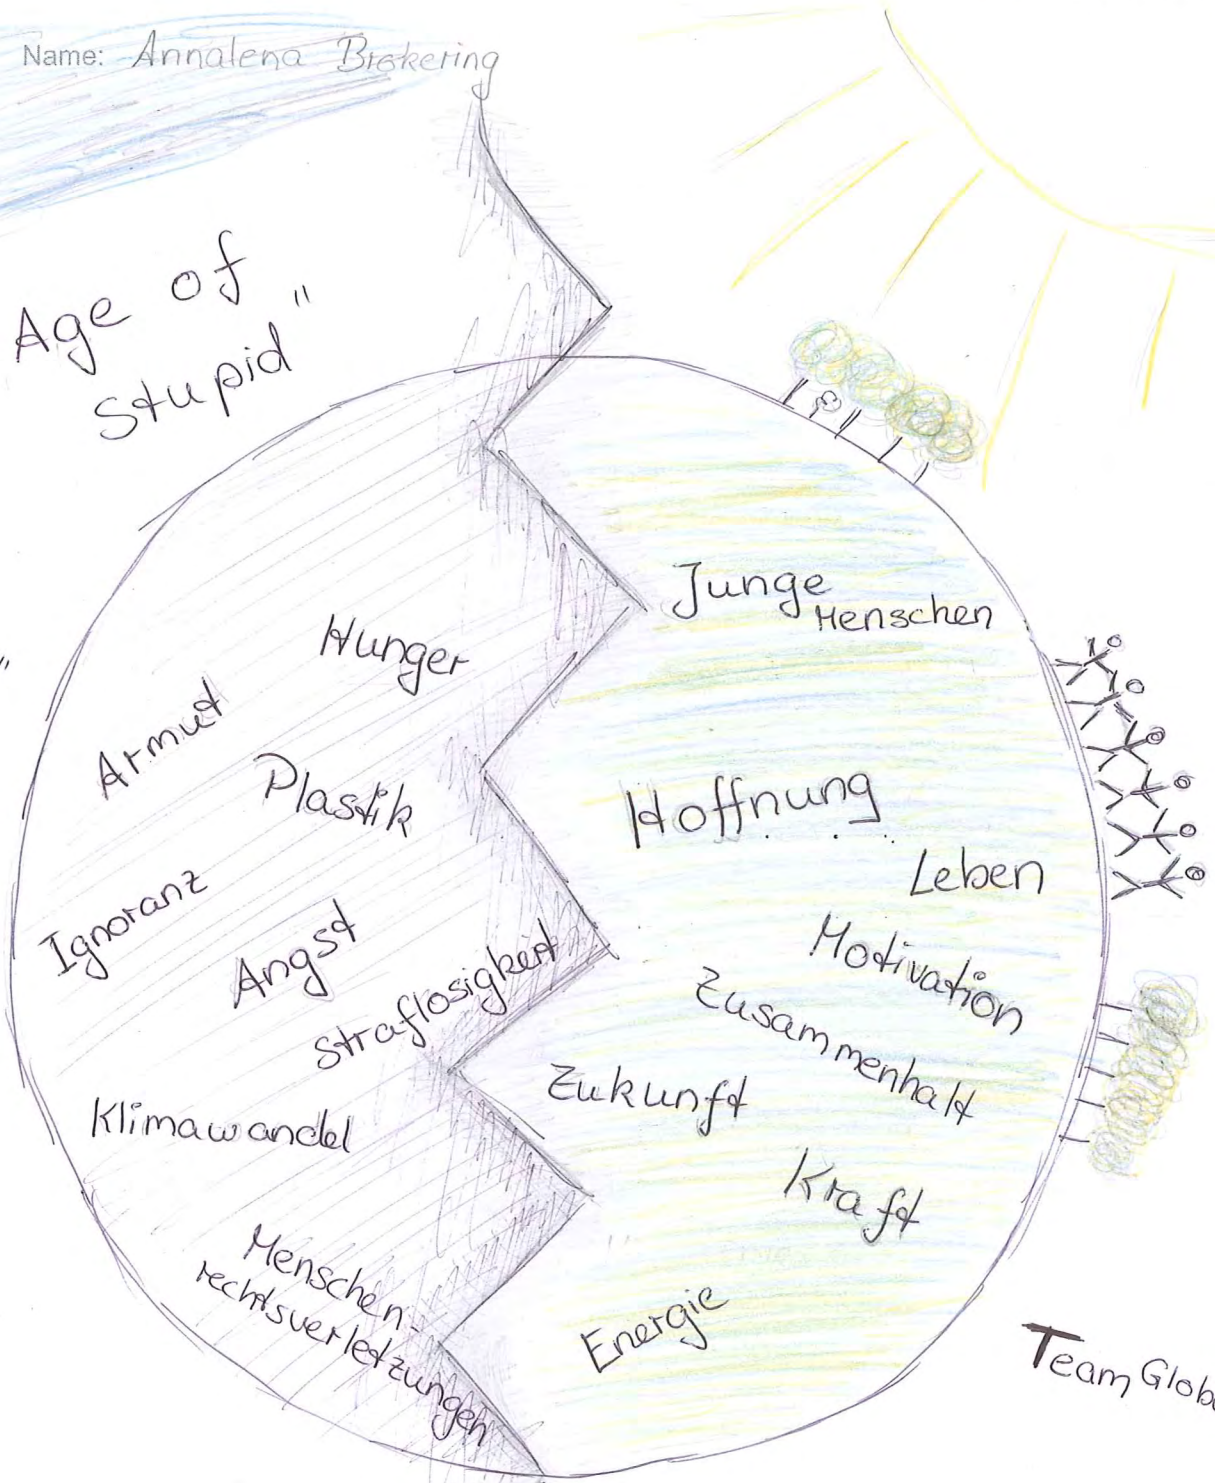 Name: Annalena Brökering
Age of
Stupid"
Hunger
Armut
Plastik
Ignoranz
Angst
Straflosigkeit
Klimawandel
Menschen-
rechtsverletzungen
Junge
Menschen
Hoffnung
Leben
Motivation
Zusammenhalt
Zukunft
Kraft
Energie
Team Globa